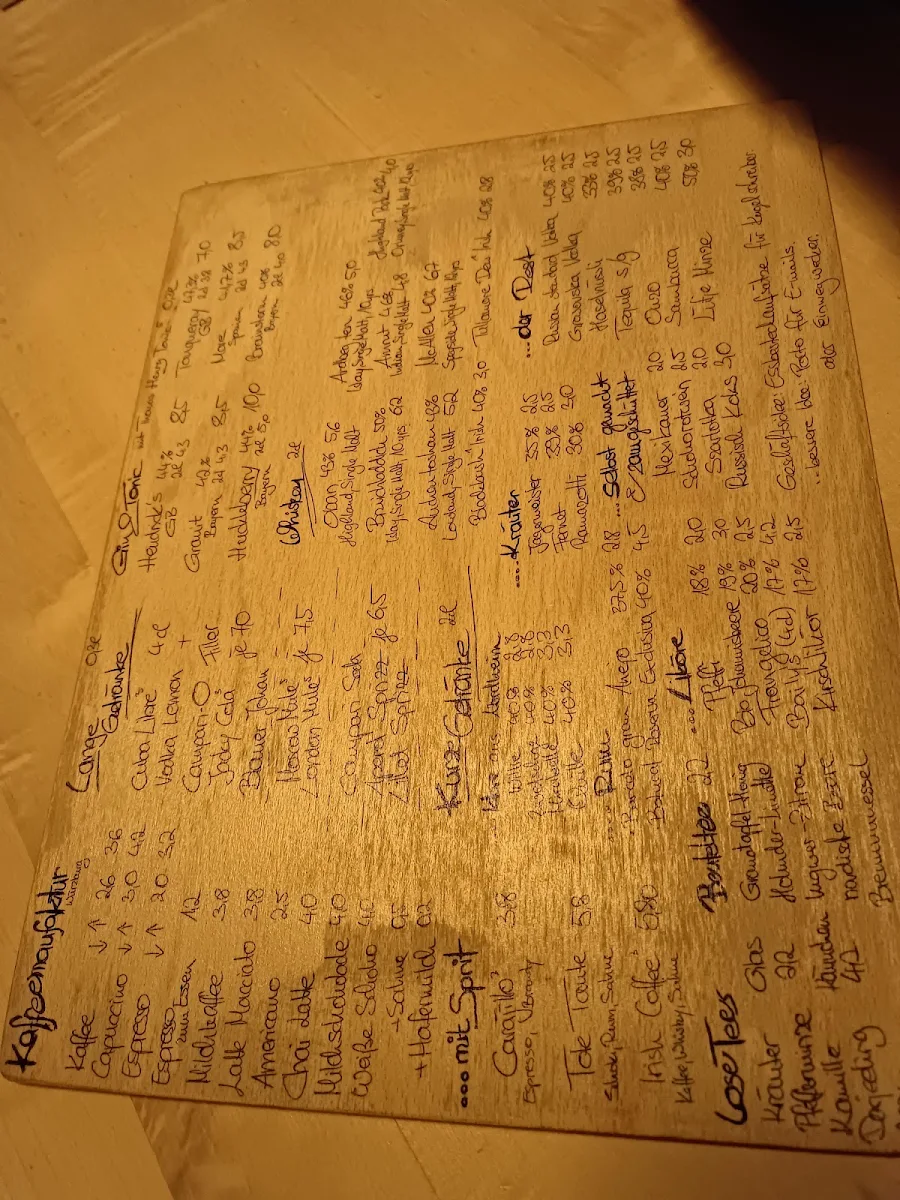 Kaffeemanufaktur
Würzburg
Kaffee ↓ ↑ 2,6 3,6
Capuccino ↓ ↑ 3,0 4,2
Espresso ↓ ↑ 2,0 3,2
Espresso
zum Essen 1,2
Milchkaffee 3,8
Latte Macciato 3,8
Americano 2,5
Chai Latte 4,0
Milchschokolade 4,0
Weiße Schoko 4,0
+ Sahne 0,5
+ Hafermilch 0,2
...mit Sprit
Carajillo 3,8
Espresso, Brandy
Tote Tante 5,8
Schoko, Rum, Sahne
Irish Coffee 5,80
Kaffee, Whisky, Sahne
Lose Tees
Glas 2,2
Kännchen 4,2
Kräuter
Pfefferminze
Kamille
Darjeeling
Beuteltee 2,2
Granatapfel-Honig
Holunder-Limette
Ingwer-Zitrone
nordische Beere
Brennnessel
Lange
Getränke
Cuba Libre 4cl
Vodka Lemon +
Campari-O Filler
Jacky Cola je 7,0
Bauer Johan
Moscow Mule
London Mule je 7,5
Campari Soda
Aperol Sprizz je 6,5
Lillet Sprizz
Kurze Getränke 2cl
40% 2,8
40% 3,3
40% 3,3
...Rum
Botucal Reserva Exclusiva 40% 4,5
37,5% 2,8
...Liköre
Pfeffi 18% 2,0
Bio Johannisbeere 19% 3,0
20% 2,5
Frangelico
Baily's (4cl) 17% 4,2
Kirschlikör 17% 2,5
Gin & Tonic
Hendrick's 44%
GB 2cl 4,3 8,5
Granit 42%
Bayern 2cl 4,3 8,5
Huckleberry 44%
Bayern 2cl 5,0 10,0
Tanqueray 47,3%
GB 7,0
Mare 42,7%
Spanien 2cl 4,3 8,5
Brandstein 40%
Bayern 2cl 4,0 8,0
Whiskey 2cl
Oban 43% 5,6
Highland Single Malt
Bruichladdich 50%
Islay Single Malt 10yrs 6,2
Auchentoshan 43%
Lowland Single Malt 5,2
Blackbush Irish 40% 3,0
Ardbeg ten 46% 5,0
Islay Single Malt 10yrs
Amrut 46%
Indian Single Malt 4,8
Highland Park 40% 4,0
Orkney Single Malt
McAllen 40% 6,7
Speyside Single Malt
Tullamore Dew Irish 40% 2,8
...Kräuter
Jägermeister 35% 2,5
Fernet 39% 2,5
Ramazotti 30% 3,0
...Selbst gemacht
& zamgschüttet
Mexikaner 2,0
Schokorotwein 2,5
Szarlotka 2,0
Russisch Koks 3,0
...der Rest
Russian Standard Vodka 40% 2,5
Grasovska Vodka 40% 2,5
Haselnuss 33% 2,5
Tequila s/g 39% 2,5
Ouzo 38% 2,5
Sambucca 40% 2,5
Lütje Minze 50% 3,0
Geschäftsidee: Essbesteckaufsätze für Kugelschreiber.
..bessere Idee: Porto für E-mails.
oder Einwegwecker.